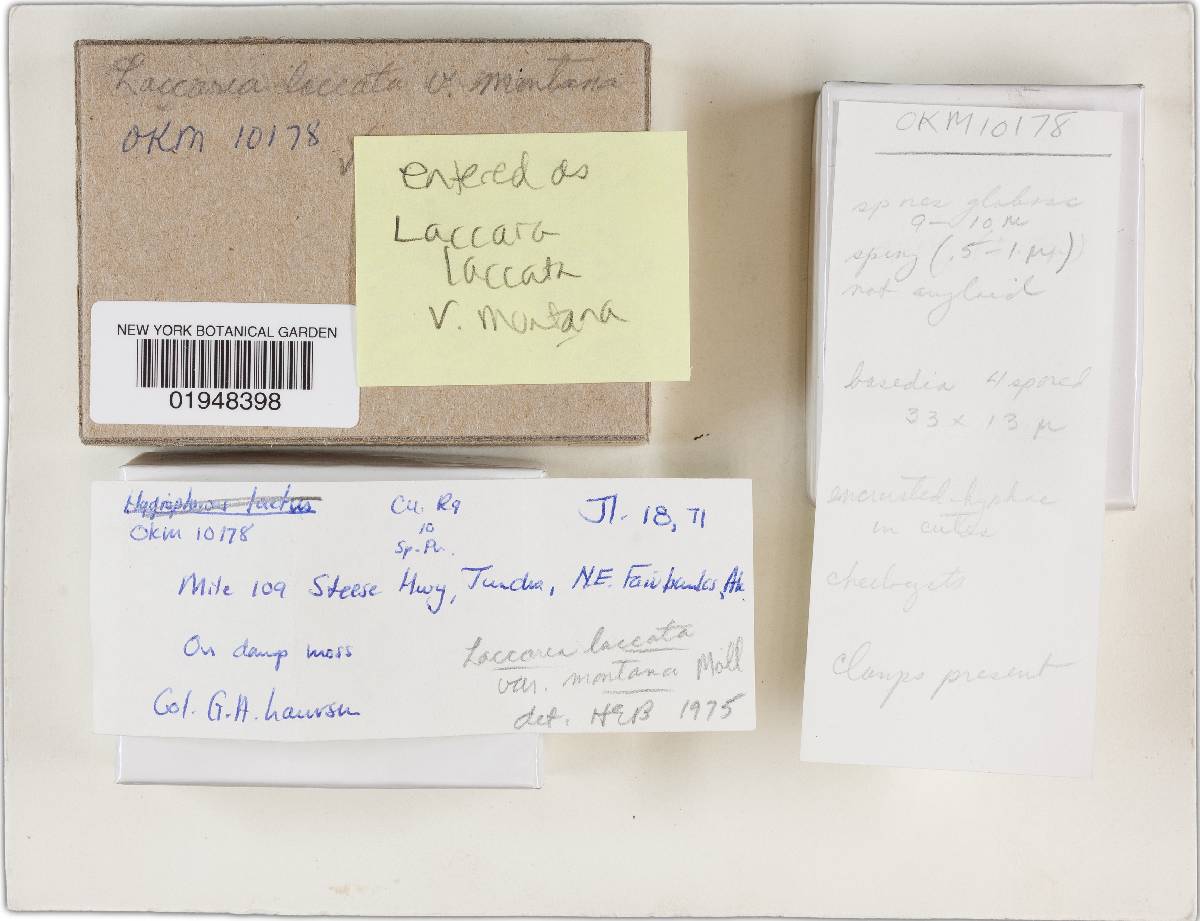 Laccaria laccata v. montana
OKM 10178 ✓
entered as
Laccara
laccata
v. montana
NEW YORK BOTANICAL GARDEN
01948398
OKM 10178
Cu. Rq
10
Sp. Pr.
Jl. 18, 71
Mile 109 Steese Hwy, Tundra, N.E. Fairbanks, Ak.
On damp moss
Col. G.A. Laursen
Laccaria laccata
var. montana Möll
det. 1975
OKM 10178
spores globose
9-10 μ
spiny (.5-1 μ)
not amyloid
basedia 4 spored
33 x 13 μ
encrusted hyphae
in cutis
clamps present